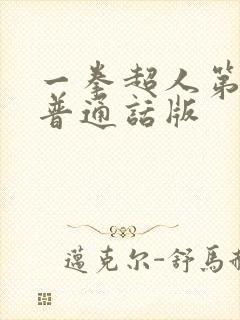 一拳超人第
普通話版
邁克尔-舒馬赫